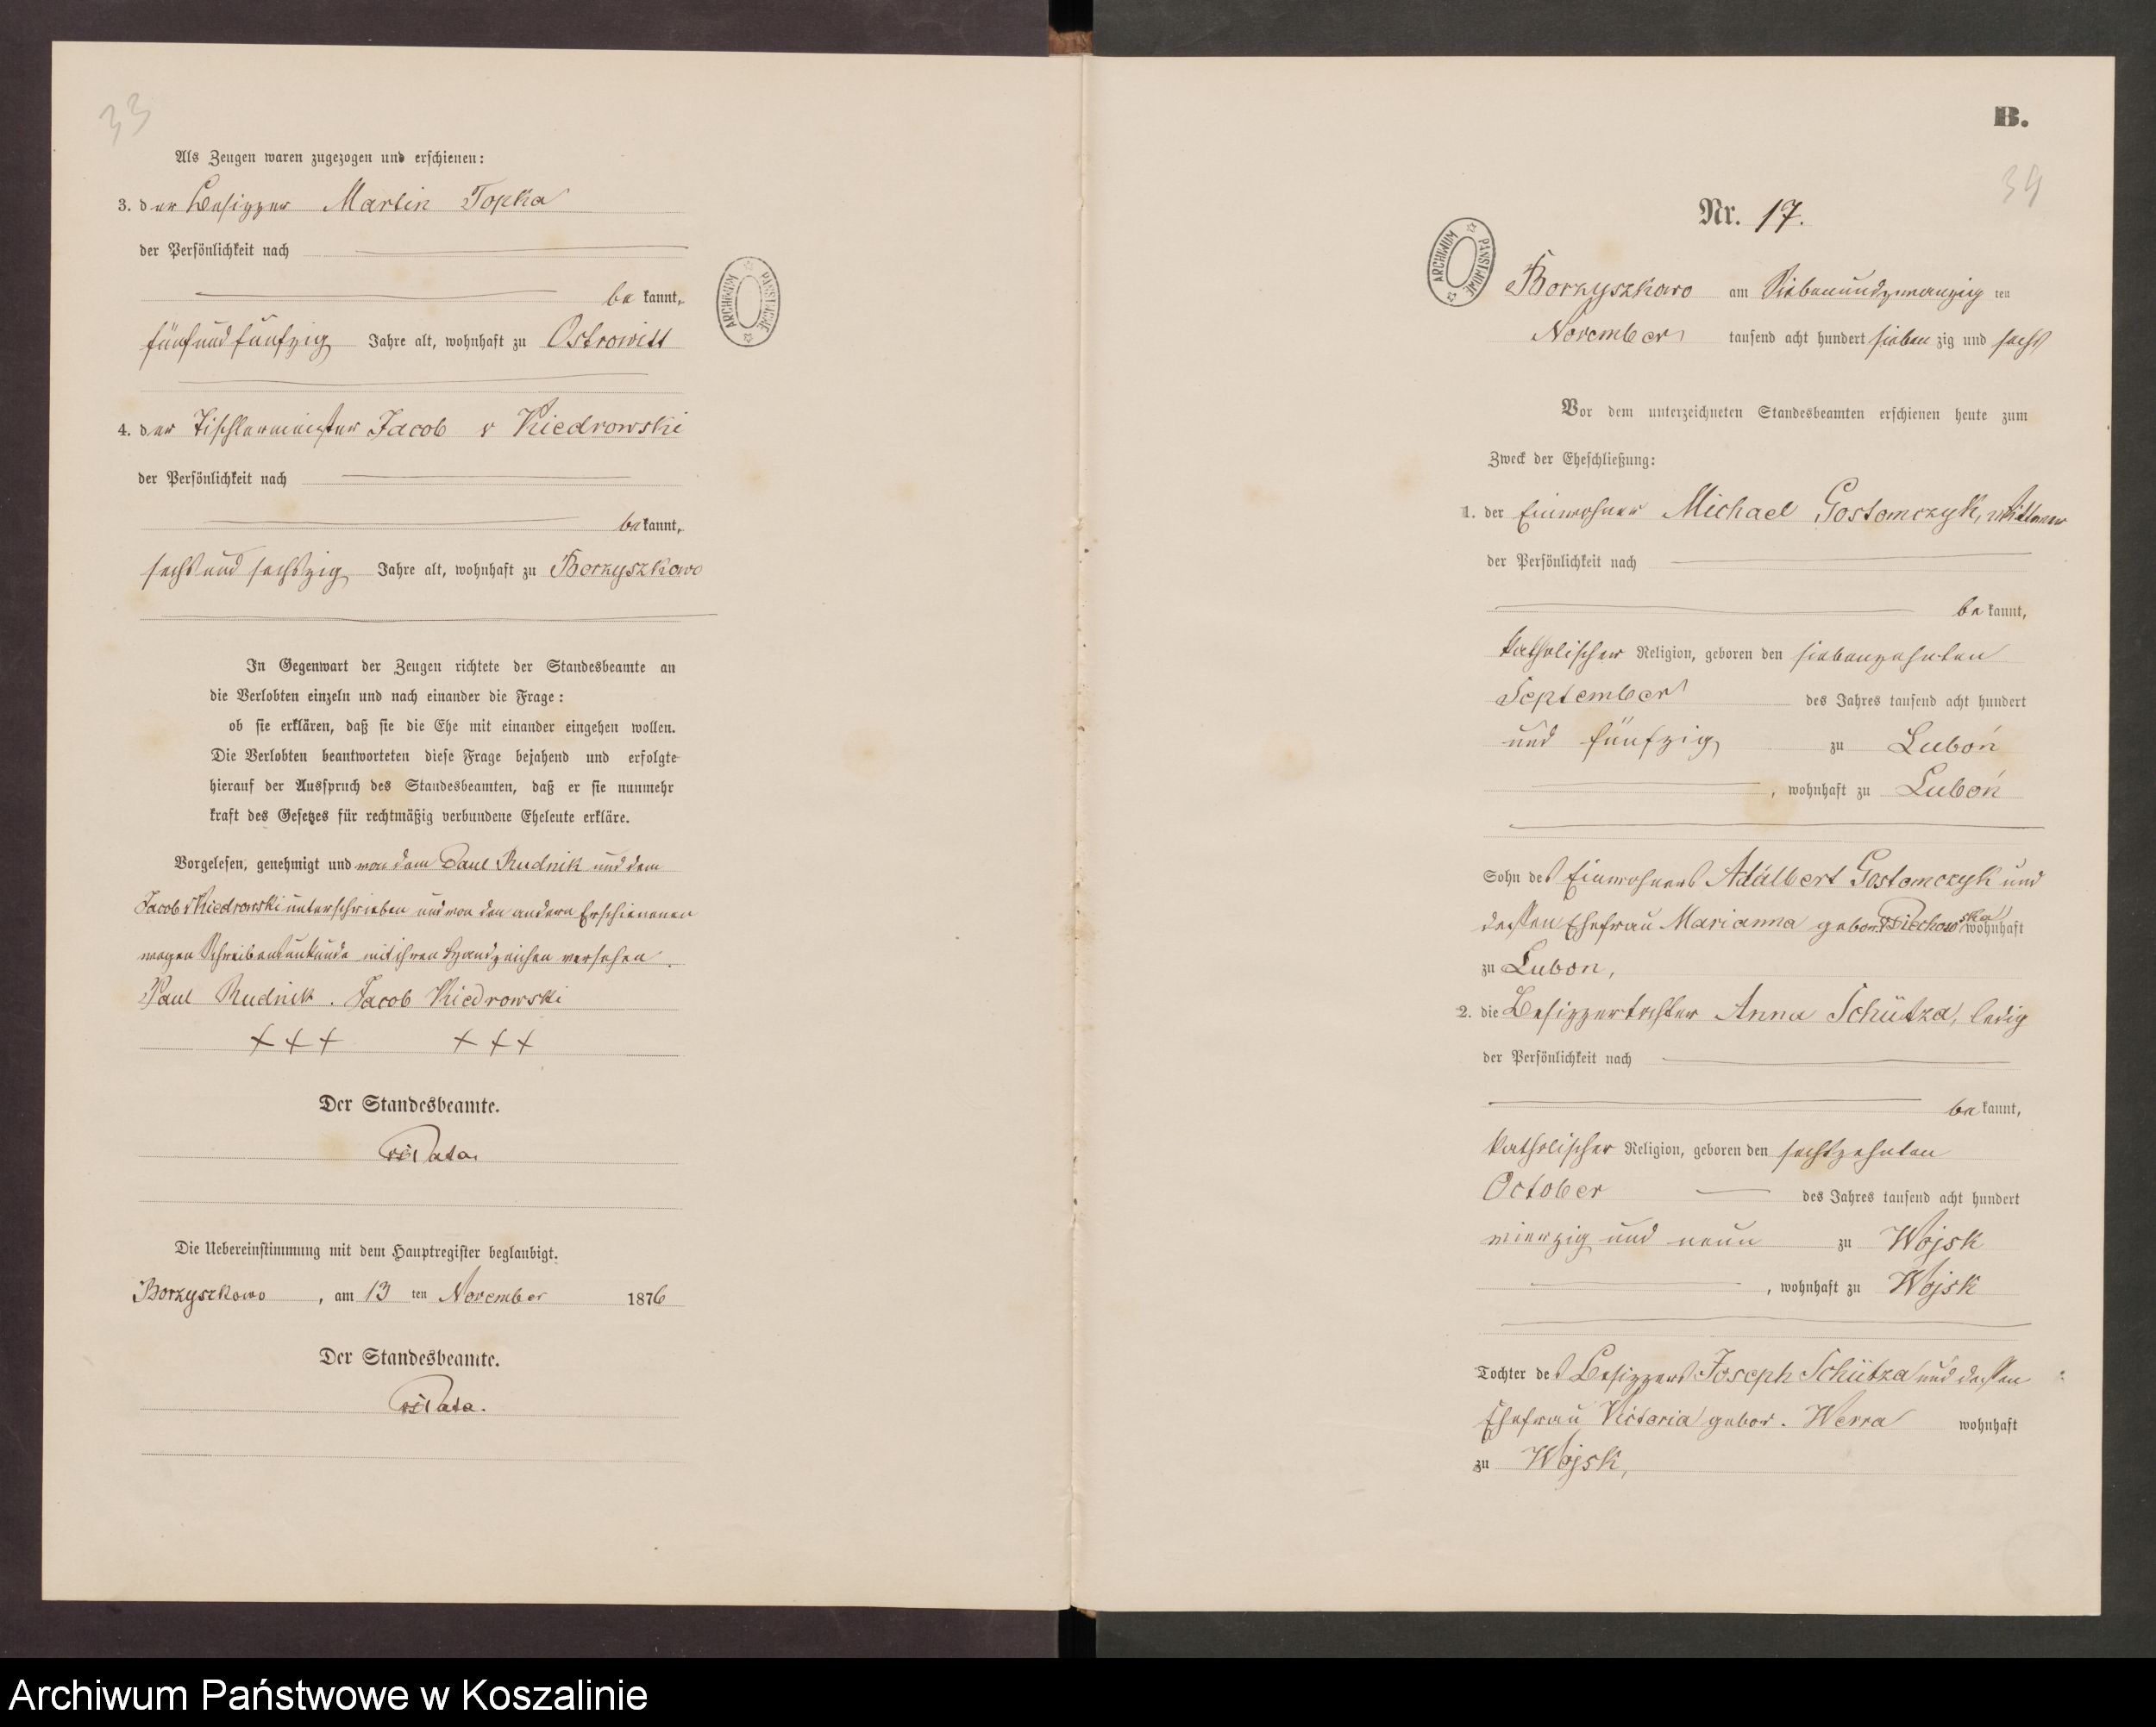 33
Als Zeugen waren zugezogen und erschienen:
3. der Besitzer Martin Topka
der Persönlichkeit nach
bekannt,
fünfundfünfzig Jahre alt, wohnhaft zu Ostrowitt
4. der Tischlermeister Jacob v Kiedrowski
der Persönlichkeit nach
bekannt,
sechsundsechszig Jahre alt, wohnhaft zu Borzyszkowo
In Gegenwart der Zeugen richtete der Standesbeamte an
die Verlobten einzeln und nach einander die Frage:
ob sie erklären, daß sie die Ehe mit einander eingehen wollen.
Die Verlobten beantworteten diese Frage bejahend und erfolgte
hierauf der Ausspruch des Standesbeamten, daß er sie nunmehr
kraft des Gesetzes für rechtmäßig verbundene Eheleute erkläre.
Vorgelesen, genehmigt und von dem Paul Rudnik und dem
Jacob v Kiedrowski unterschrieben und von den andern Erschienenen
wegen Schreibensunkunde mit ihren Handzeichen versehen.
Paul Rudnik. Jacob Kiedrowski
+++ +++
Der Standesbeamte.
Die Uebereinstimmung mit dem Hauptregister beglaubigt.
Borzyszkowo, am 13 ten November 1876
Der Standesbeamte.
ARCHIWUM PAŃSTWOWE
B.
34
Nr. 17.
ARCHIWUM PAŃSTWOWE
Borzyszkowo am Siebenundzwanzig ten
November tausend acht hundert siebenzig und sechs
Vor dem unterzeichneten Standesbeamten erschienen heute zum
Zweck der Eheschließung:
1. der Einwohner Michael Gostomczyk, Wittwer
der Persönlichkeit nach
bekannt,
katholischer Religion, geboren den siebenzehnten
September des Jahres tausend acht hundert
und fünfzig zu Luboń
, wohnhaft zu Luboń
Sohn des Einwohners Adalbert Gostomczyk und
dessen Ehefrau Marianna gebor. Piechowska wohnhaft
zu Lubon,
2. die Besitzertochter Anna Schütza, ledig
der Persönlichkeit nach
bekannt,
katholischer Religion, geboren den sechszehnten
October des Jahres tausend acht hundert
vierzig und neun zu Wojsk
, wohnhaft zu Wojsk
Tochter des Besitzers Joseph Schütza und dessen
Ehefrau Victoria gebor. Werra wohnhaft
zu Wojsk,
Archiwum Państwowe w Koszalinie